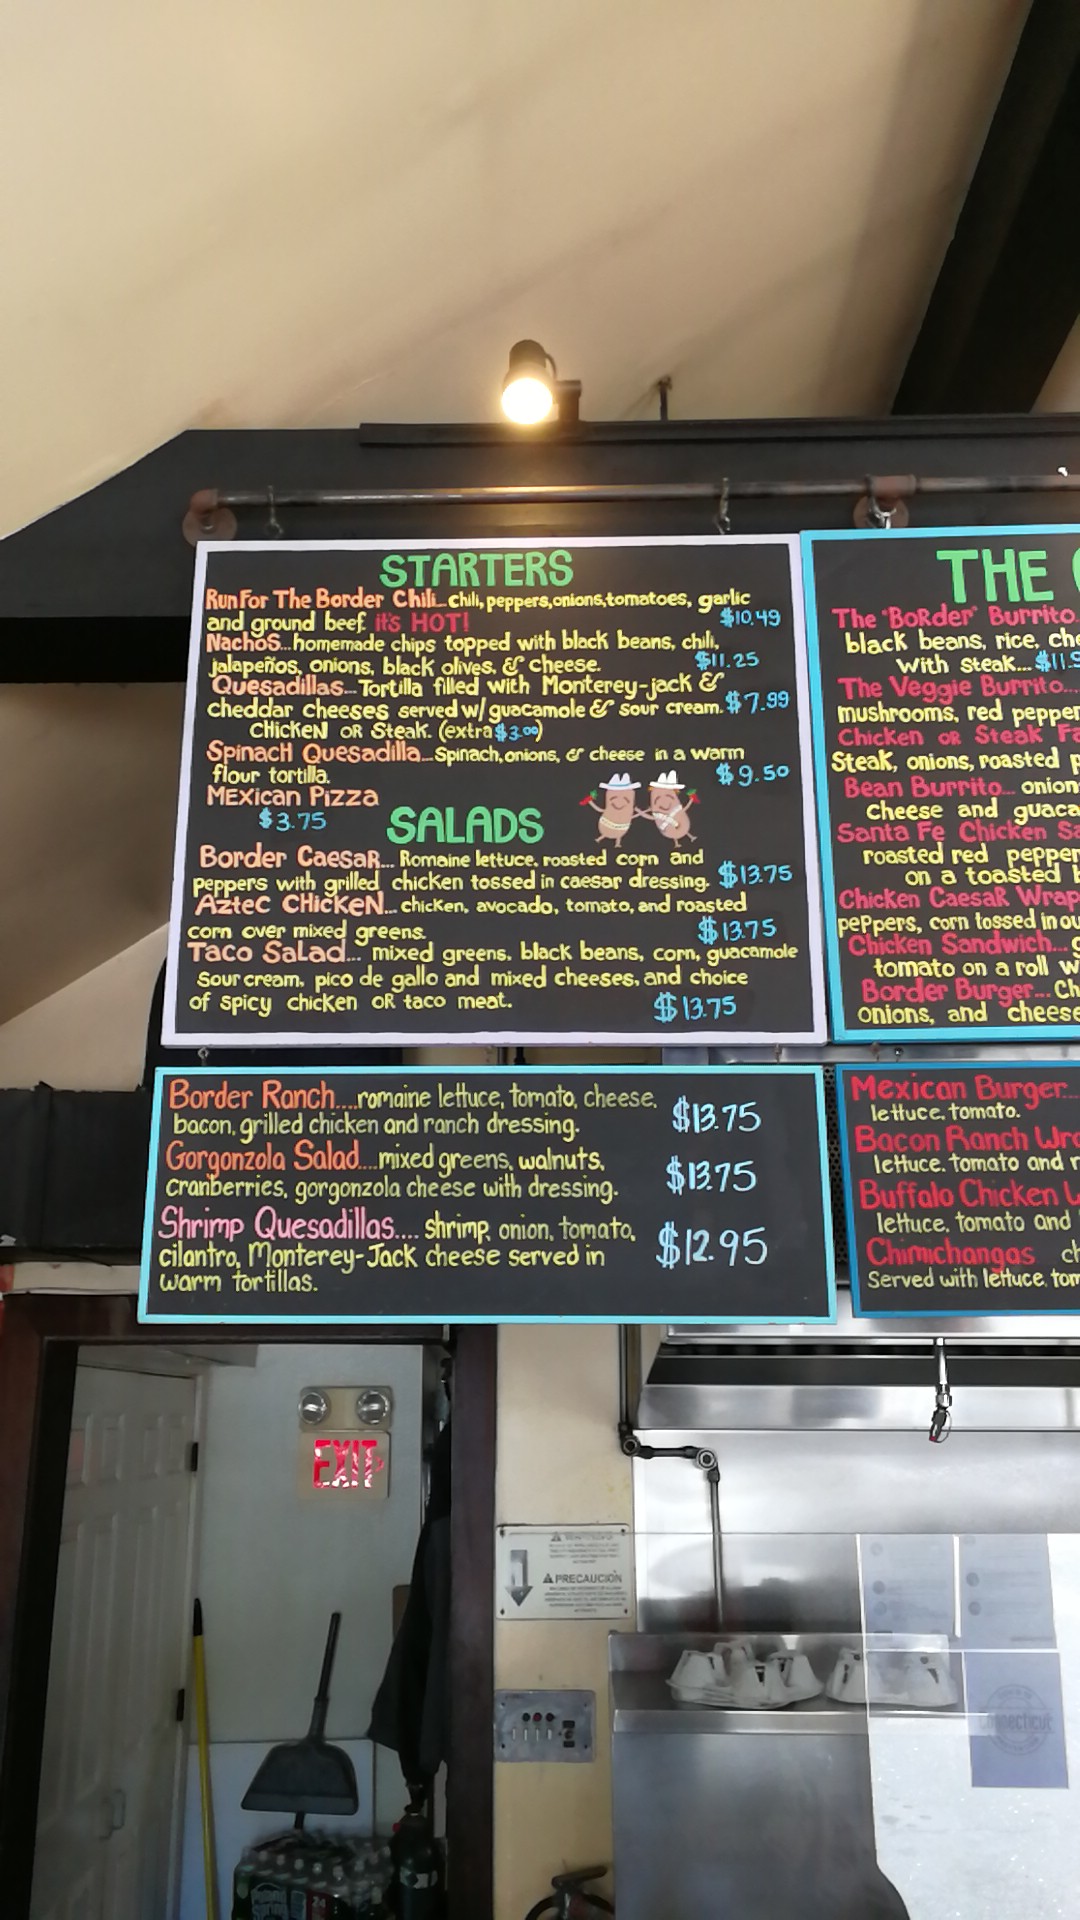 STARTERS
Run For The Border Chili...chili, peppers, onions, tomatoes, garlic
and ground beef. it's HOT! $10.49
Nachos...homemade chips topped with black beans, chili,
jalapeños, onions, black olives, & cheese. $11.25
Quesadillas...Tortilla filled with Monterey-jack &
cheddar cheeses served w/ guacamole & sour cream. $7.99
Chicken or Steak. (extra $3.00)
Spinach Quesadilla...Spinach, onions, & cheese in a warm
flour tortilla. $9.50
Mexican Pizza
$3.75
SALADS
Border Caesar... Romaine lettuce, roasted corn and
peppers with grilled chicken tossed in caesar dressing. $13.75
Aztec Chicken... chicken, avocado, tomato, and roasted
corn over mixed greens. $13.75
Taco Salad... mixed greens, black beans, corn, guacamole
sour cream, pico de gallo and mixed cheeses, and choice
of spicy chicken or taco meat. $13.75
Border Ranch....romaine lettuce, tomato, cheese,
bacon, grilled chicken and ranch dressing. $13.75
Gorgonzola Salad....mixed greens, walnuts,
cranberries, gorgonzola cheese with dressing. $13.75
Shrimp Quesadillas.... shrimp, onion, tomato,
cilantro, Monterey-Jack cheese served in $12.95
warm tortillas.
THE
The "Border" Burrito.
black beans, rice,
With steak...
The Veggie Burrito...
mushrooms, red
Chicken or Steak
Steak, onions, roasted
Bean Burrito...
Cheese and
Santa Fe Chicken
roasted red
on a toasted
Chicken Caesar Wrap
peppers, corn tossed in
Chicken Sandwich...
tomato on a roll
Border Burger...
Onions, and cheese
Mexican Burger...
lettuce, tomato.
Bacon Ranch
lettuce, tomato and
Buffalo Chicken
lettuce, tomato and
Chimichangas
Served with lettuce,
EXIT
PRECAUCIÓN